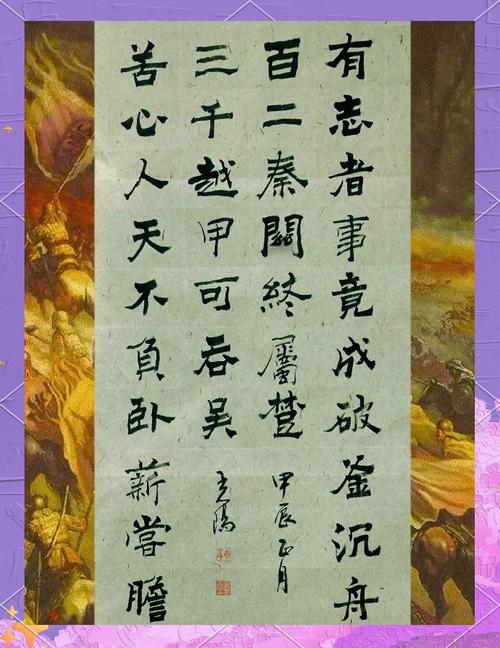 有志者事竟成破釜沉舟
百二秦關終屬楚
苦心人天不負卧薪嘗膽
三千越甲可吞吳
甲辰正月